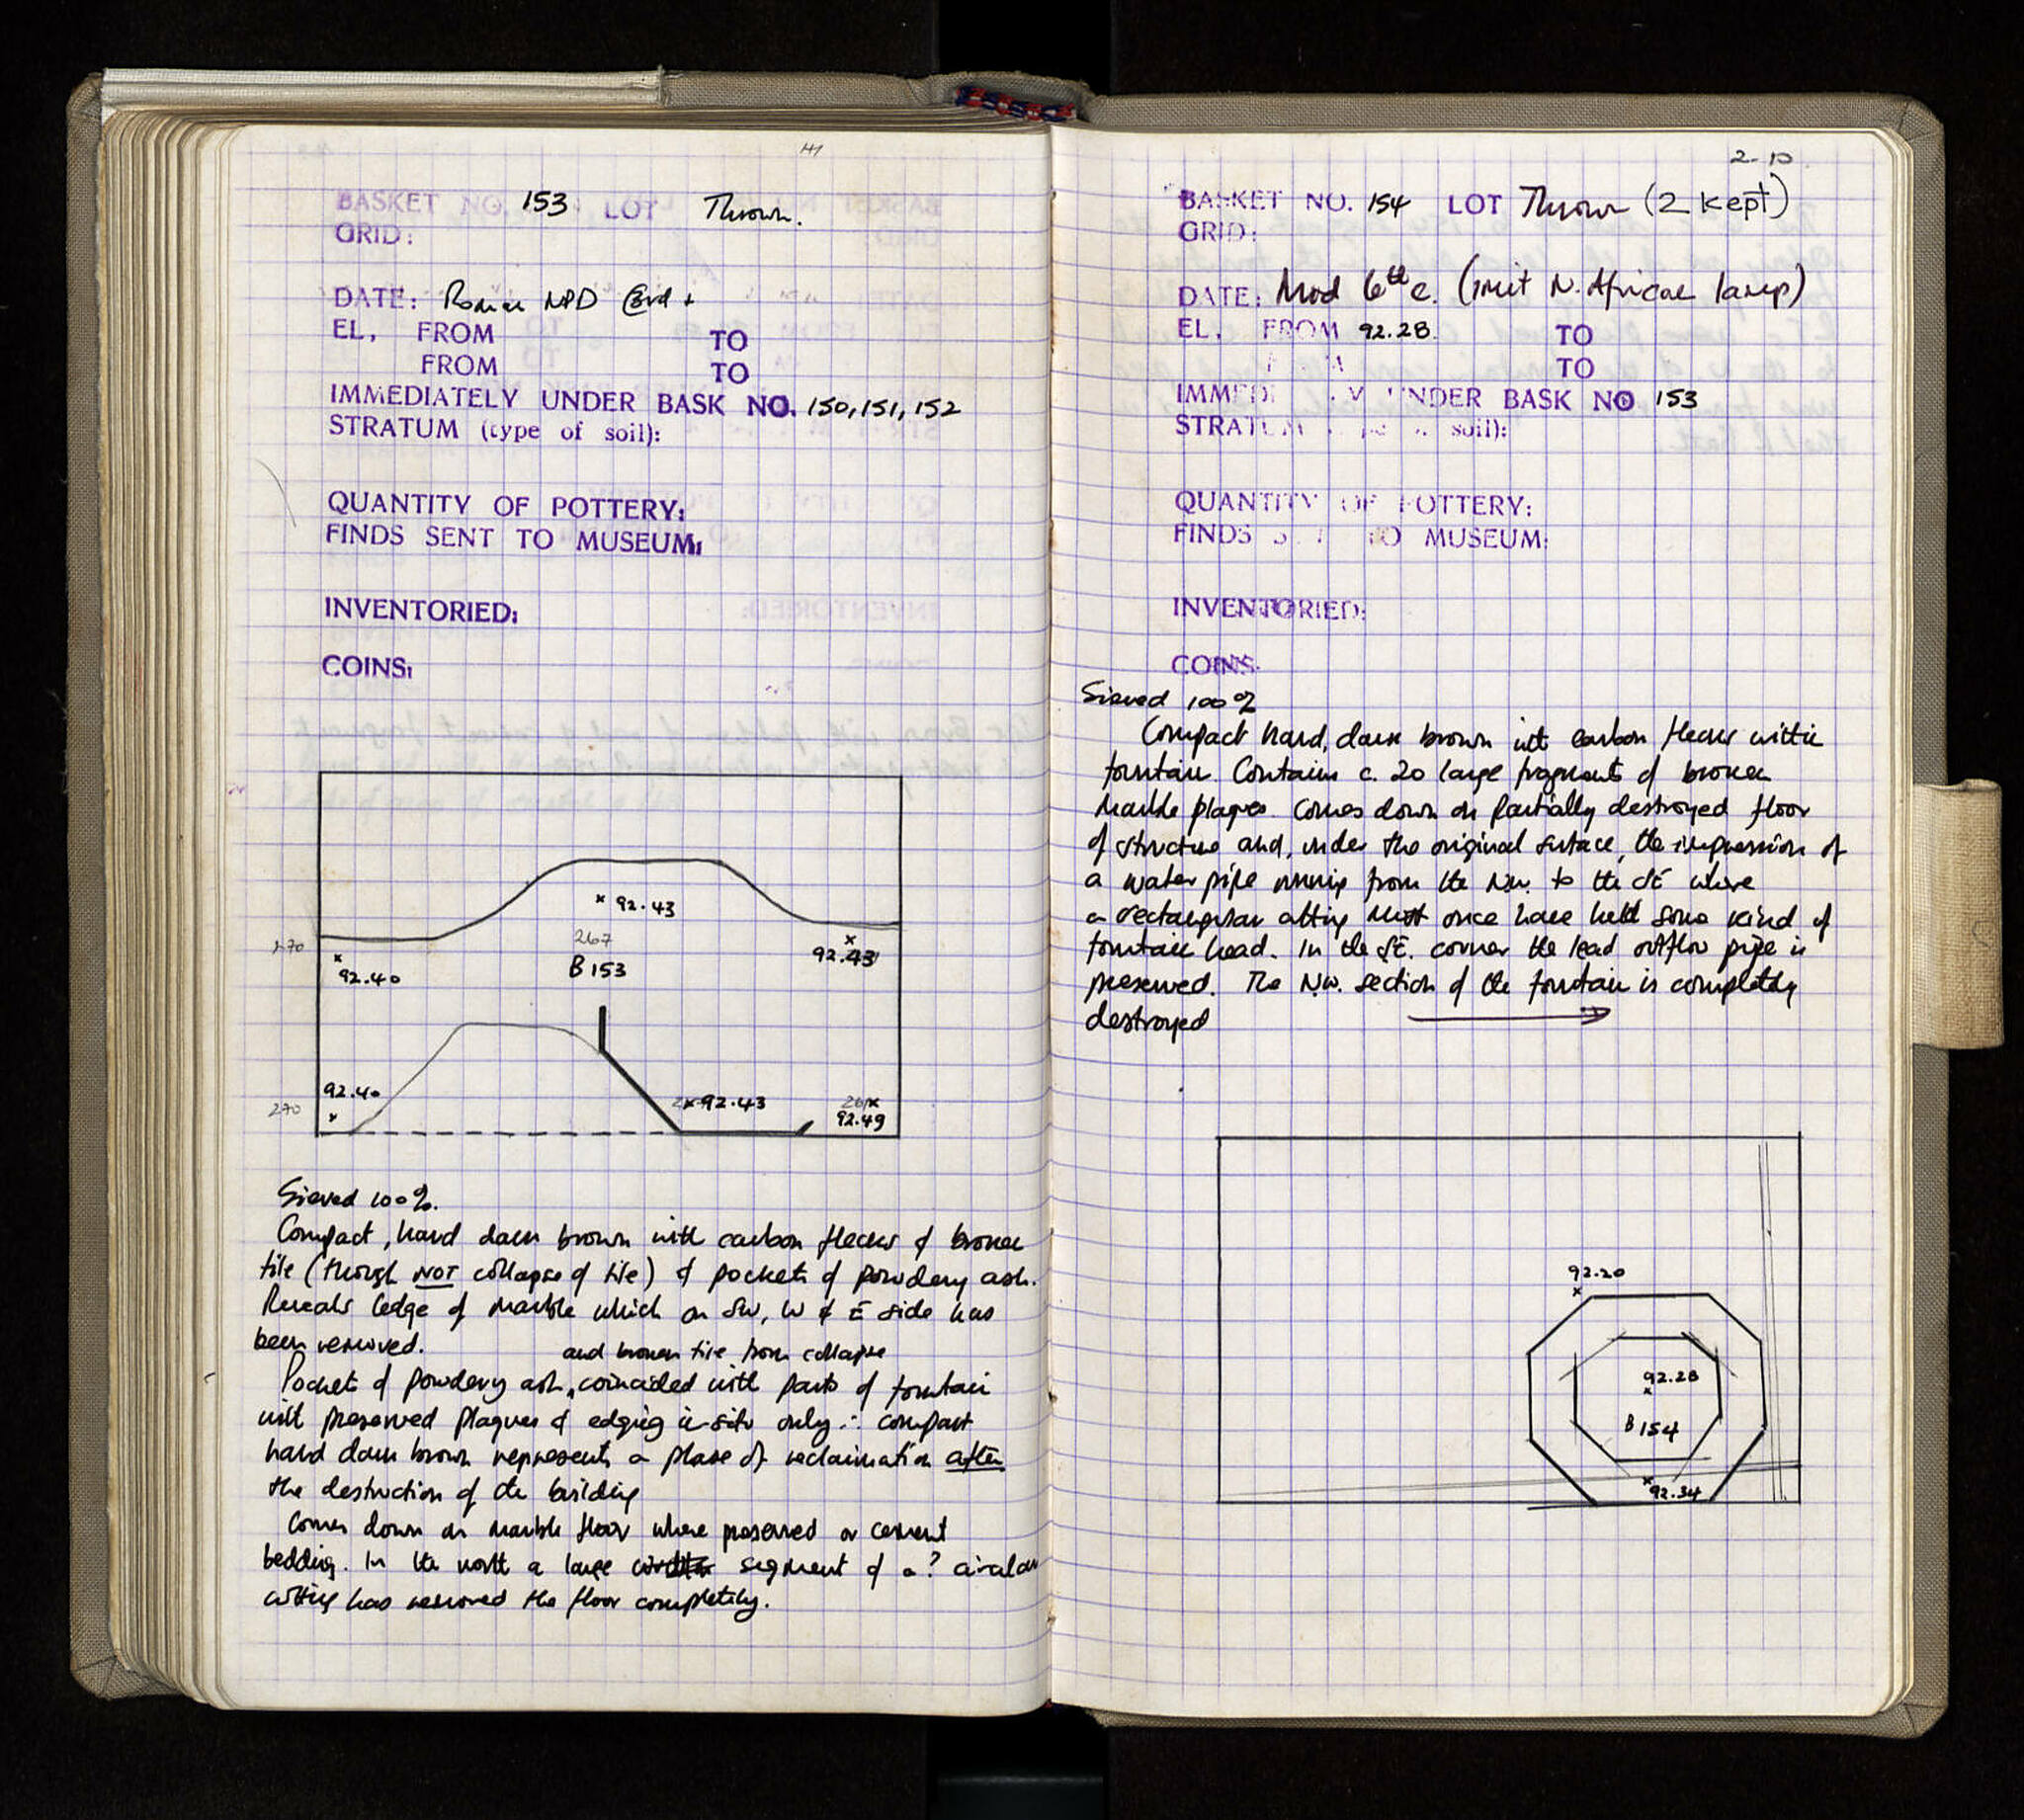 141
BASKET NO. 153 LOT Thrown.
GRID:
DATE: Roman NPD
EL, FROM TO
FROM TO
IMMEDIATELY UNDER BASK NO. 150, 151, 152
STRATUM (type of soil):
QUANTITY OF POTTERY:
FINDS SENT TO MUSEUM:
INVENTORIED:
COINS:
× 92.43
267
B 153
270
× 92.40
× 92.43
92.40
×
270
× 92.43
×
92.49
Sieved 100%.
Compact, hard dark brown with carbon flecks & broken
tile (though NOT collapse of tile) & pockets of powdery ash.
Reveals ledge of marble which on SW, W & E side has
been removed.
and broken tile from collapse
Pockets of powdery ash, coincided with parts of fountain
with preserved plaques & edging in-situ only ∴ compact
hard dark brown represents a phase of reclaimation after
the destruction of the building
Comes down on marble floor where preserved or cement
bedding. In the north a large segment of a ? circular
cutting has removed the floor completely.
2-10
BASKET NO. 154 LOT Thrown (2 kept)
GRID:
DATE: Mod 6th c. (imit N. African lamp)
EL, FROM 92.28 TO
TO
IMMEDIATELY UNDER BASK NO 153
STRATUM (type of soil):
QUANTITY OF POTTERY:
FINDS SENT TO MUSEUM:
INVENTORIED:
COINS:
Sieved 100%
Compact hard, dark brown with carbon flecks within
fountain. Contains c. 20 large fragments of broken
marble plaques. Comes down on partially destroyed floor
of structure and, under the original surface, the impression of
a water pipe running from the NW. to the SE where
a rectangular cutting must once have held some kind of
fountain head. In the SE. corner the lead outflow pipe is
preserved. The N.W. section of the fountain is completely
destroyed
92.20
×
92.28
×
B 154
×
92.34